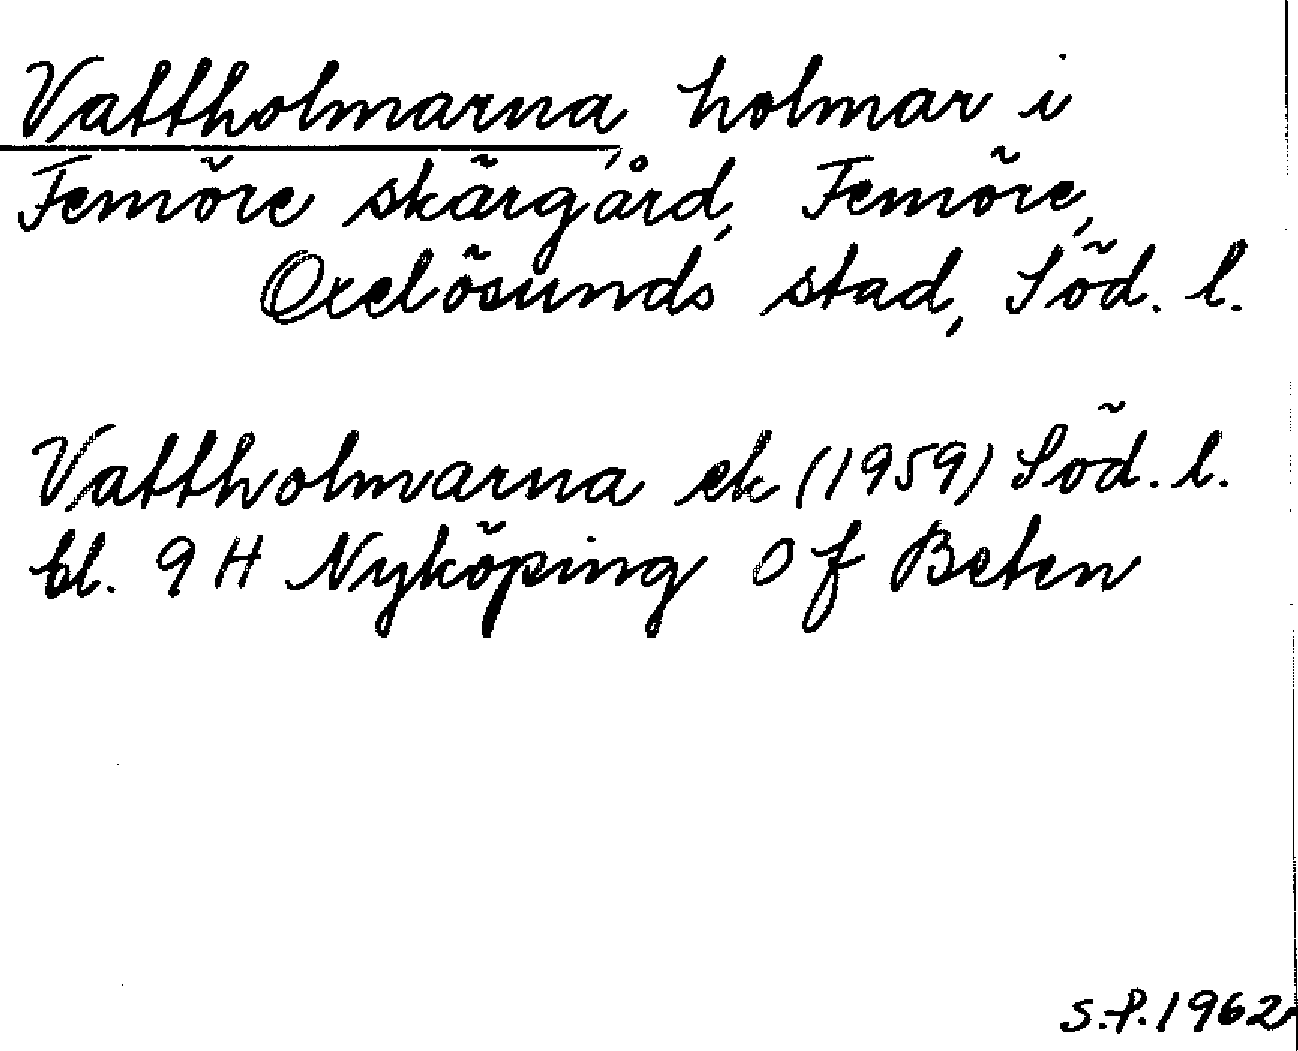 Vattholmarna, holmar i
Femöre skärgård, Femöre,
Oxelösunds stad, Söd. l.
Vattholmarna ek (1959) Söd. l.
bl. 9 H Nyköping O f Beten
S.P. 1962